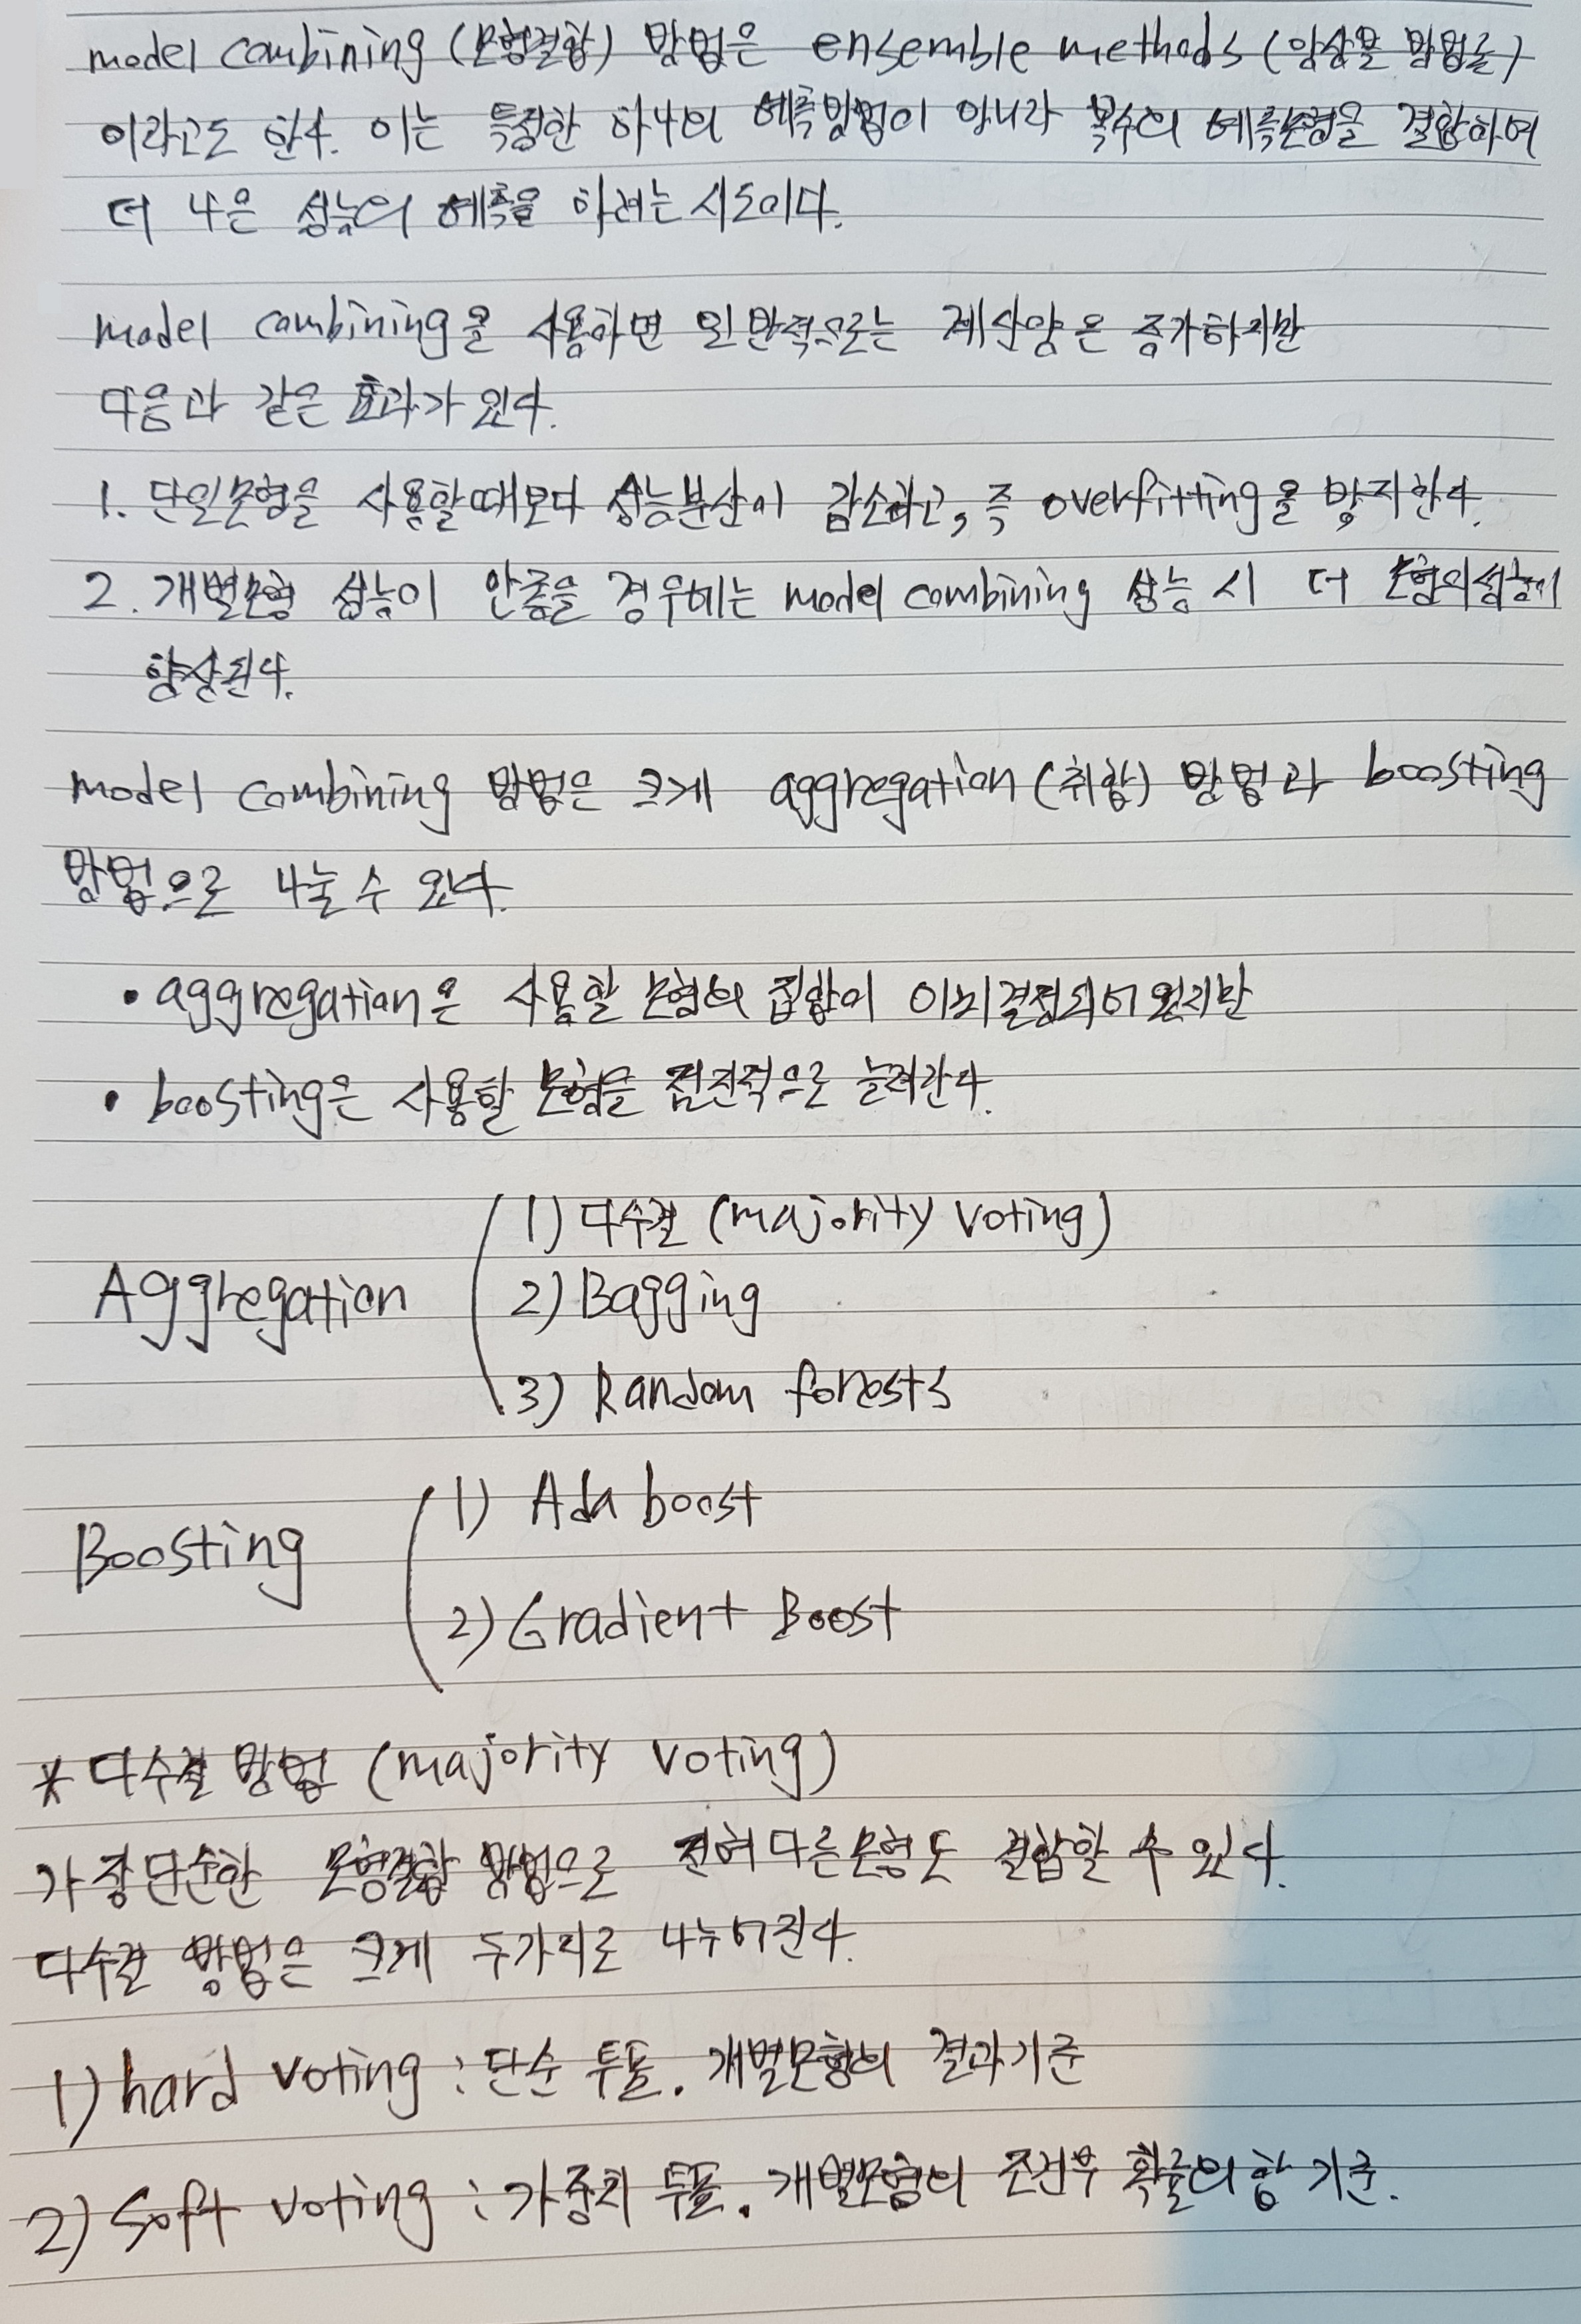 model combining (모형결합) 방법은 ensemble methods (앙상블 방법론)
이라고도 한다. 이는 특정한 하나의 예측방법이 아니라 복수의 예측모형을 결합하여
더 나은 성능의 예측을 하려는 시도이다.
model combining을 사용하면 일반적으로는 계산량은 증가하지만
다음과 같은 효과가 있다.
1. 단일모형을 사용할때보다 성능분산이 감소하고, 즉 overfitting을 방지한다.
2. 개별모형 성능이 안좋을 경우에는 model combining 성능 시 더 모형의성능이
향상된다.
model combining 방법은 크게 aggregation (취합) 방법과 boosting
방법으로 나눌 수 있다.
• aggregation은 사용할 모형의 집합이 이미결정되어있지만
• boosting은 사용할 모형을 점진적으로 늘려간다.
1) 다수결 (majority voting)
Aggregation 2) Bagging
3) Random forests
1) Ada boost
Boosting
2) Gradient Boost
* 다수결 방법 (majority voting)
가장 단순한 모형결합 방법으로 전혀 다른모형도 결합할 수 있다.
다수결 방법은 크게 두가지로 나누어진다.
1) hard voting : 단순 투표. 개별모형의 결과기준
2) Soft voting : 가중치 투표. 개별모형의 조건부 확률의 합 기준.